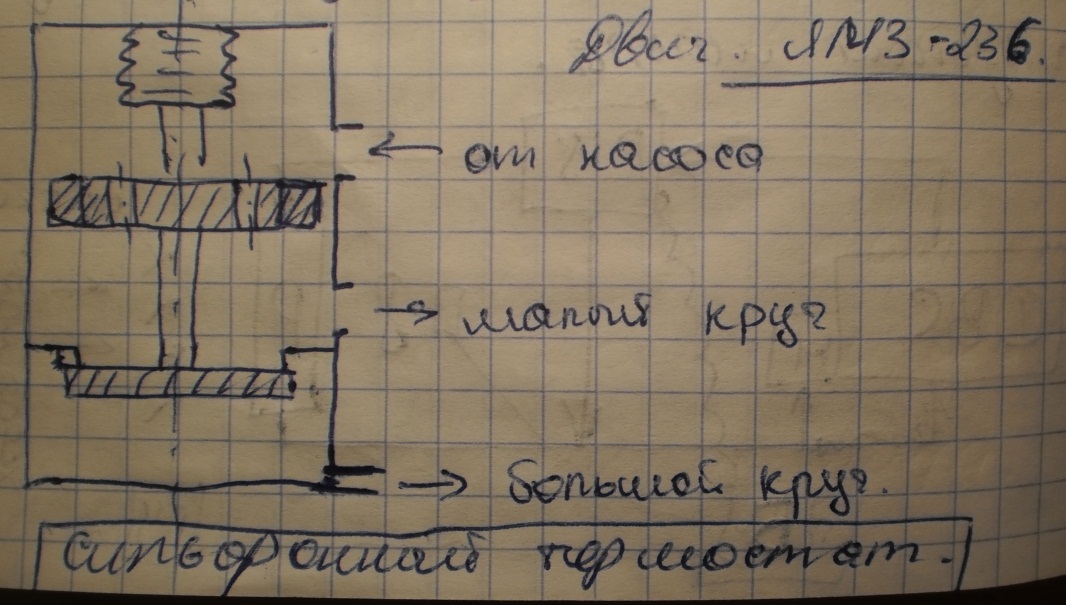 Двиг. ЯМЗ-236.
← от насоса
→ малый круг
→ большой круг.
Сильфонный термостат.